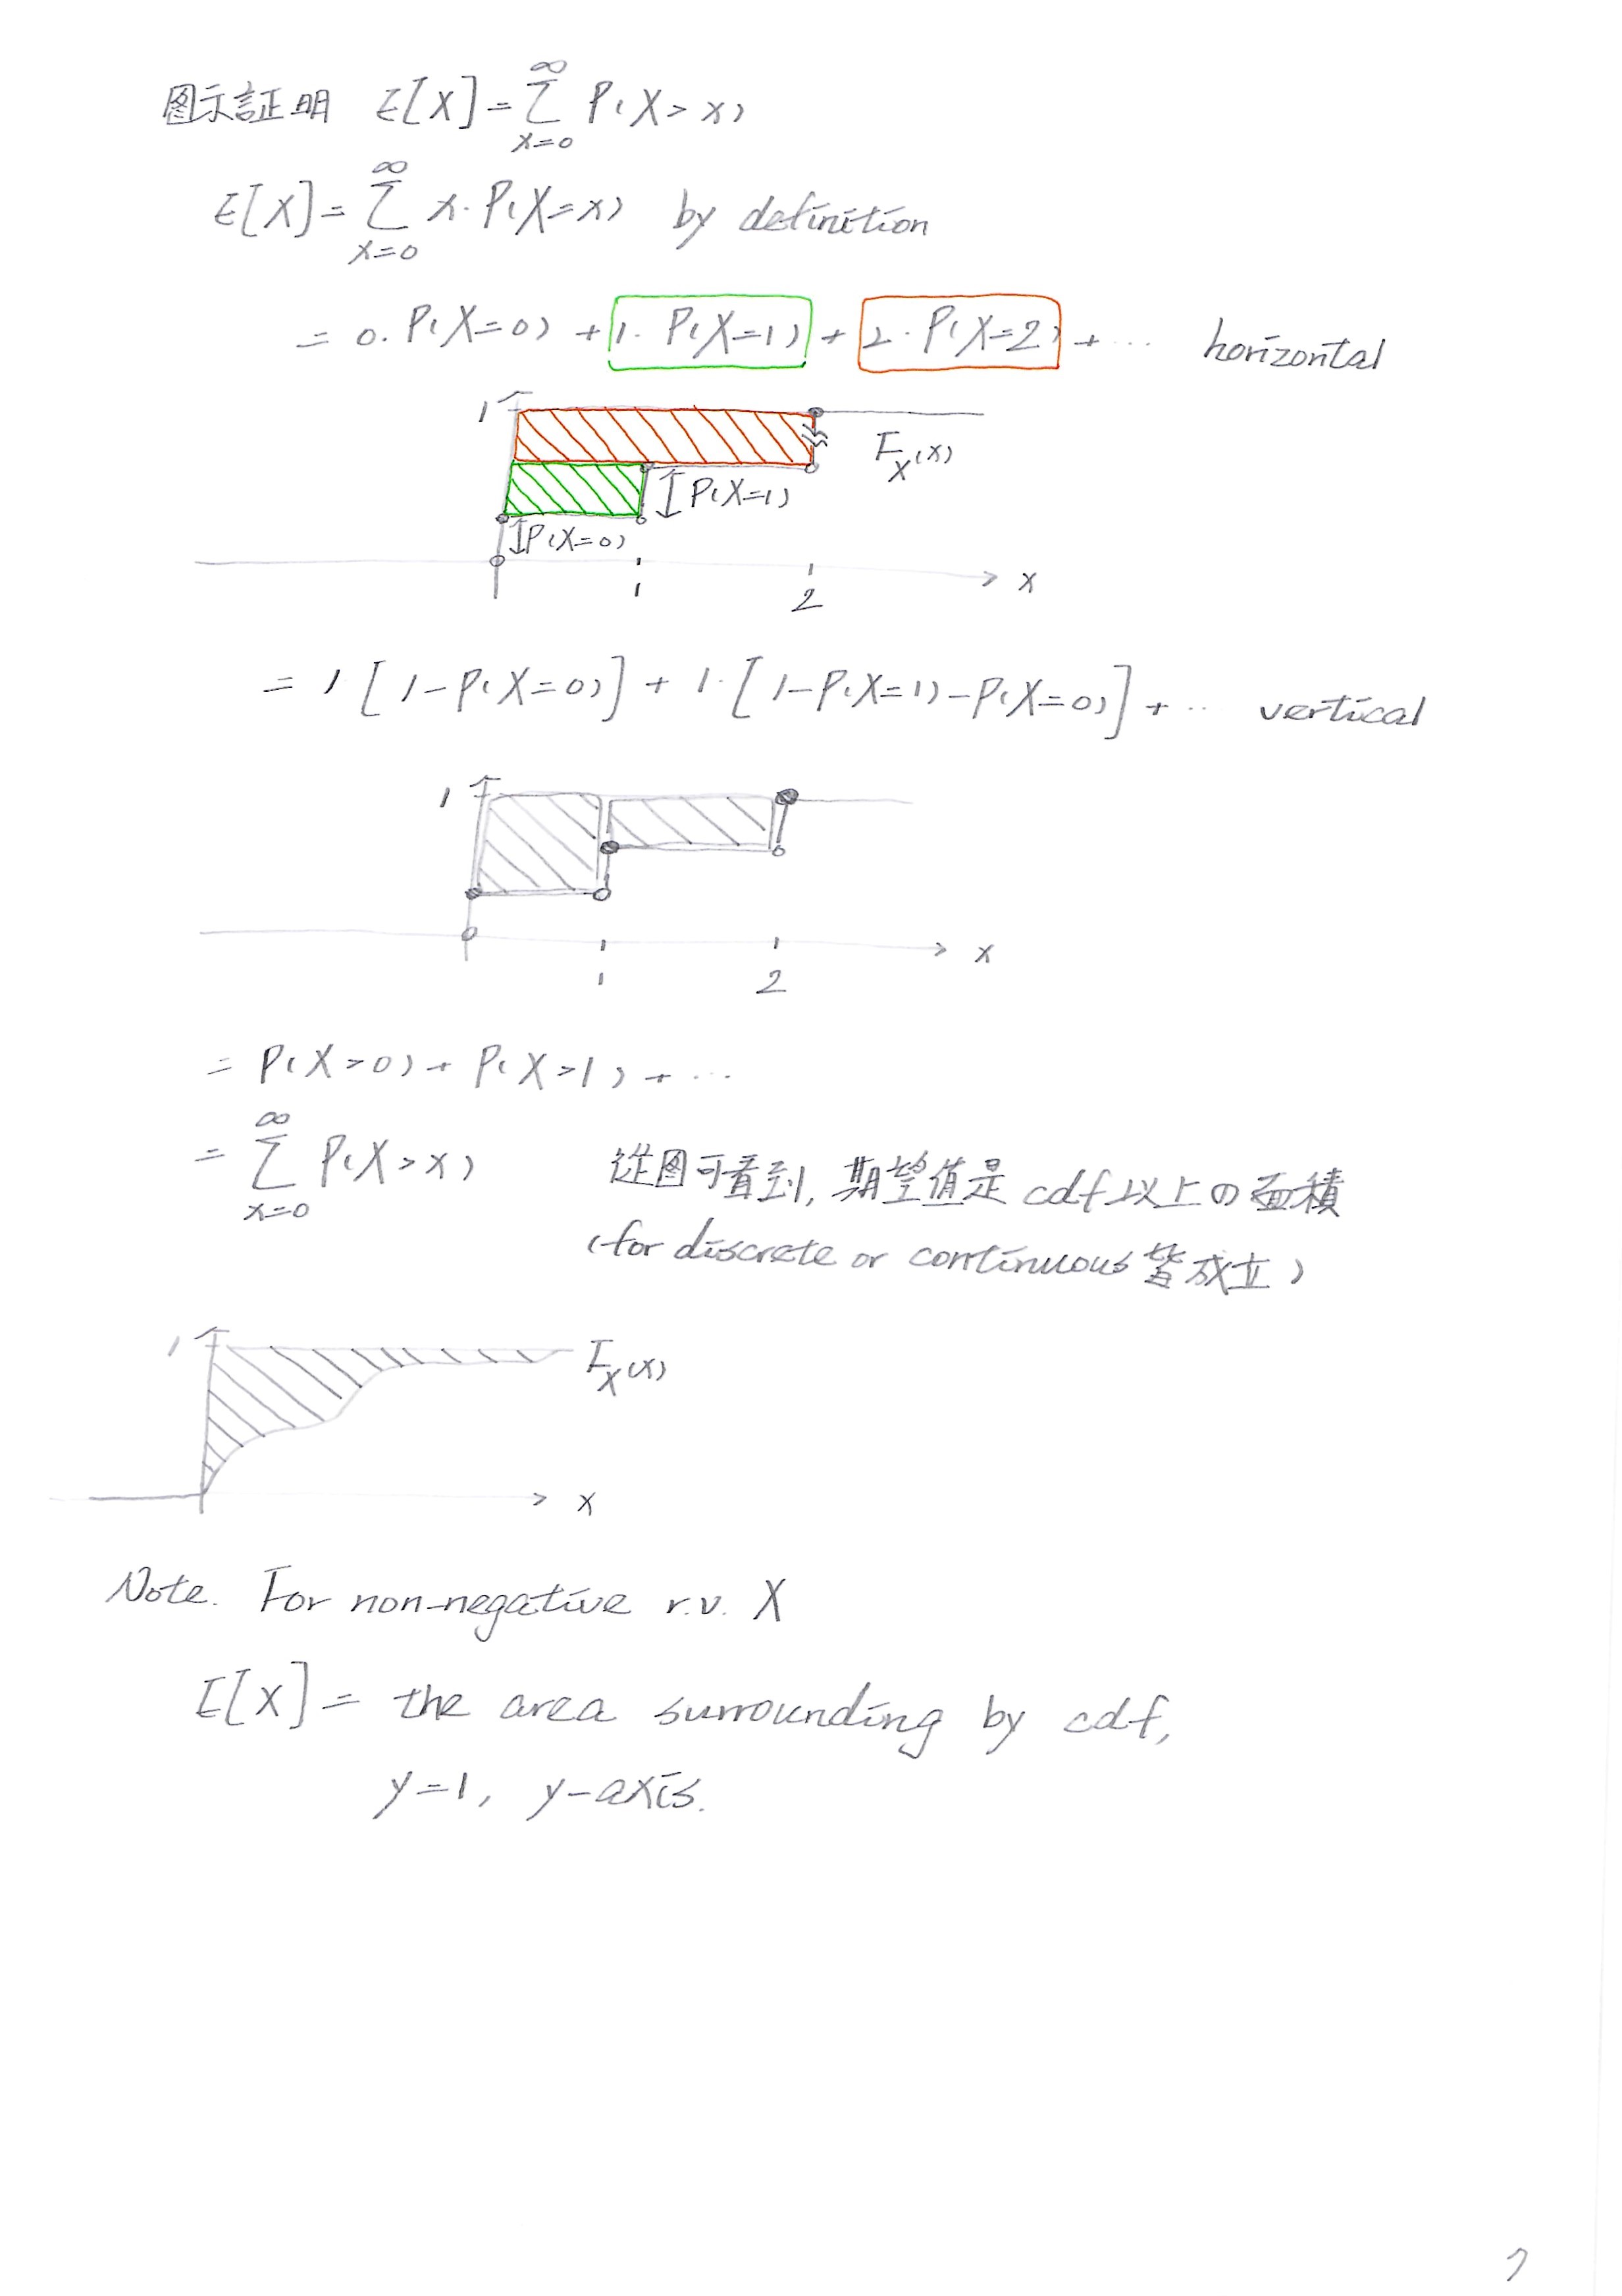 图示証明 E[X] = ∑_{x=0}^{∞} P(X > x)
E[X] = ∑_{x=0}^{∞} x · P(X=x) by definition
= 0 · P(X=0) + 1 · P(X=1) + 2 · P(X=2) + ··· horizontal
1
F_X(x)
P(X=1)
P(X=0)
x
1 2
= 1 [1-P(X=0)] + 1 · [1-P(X=1)-P(X=0)] + ··· vertical
1
x
1 2
= P(X>0) + P(X>1) + ···
= ∑_{x=0}^{∞} P(X > x) 從图可看到, 期望值是 cdf 以上の面積
(for discrete or continuous 皆成立)
1 F_X(x)
x
Note. For non-negative r.v. X
E[X] = the area surrounding by cdf,
y=1, y-axis.